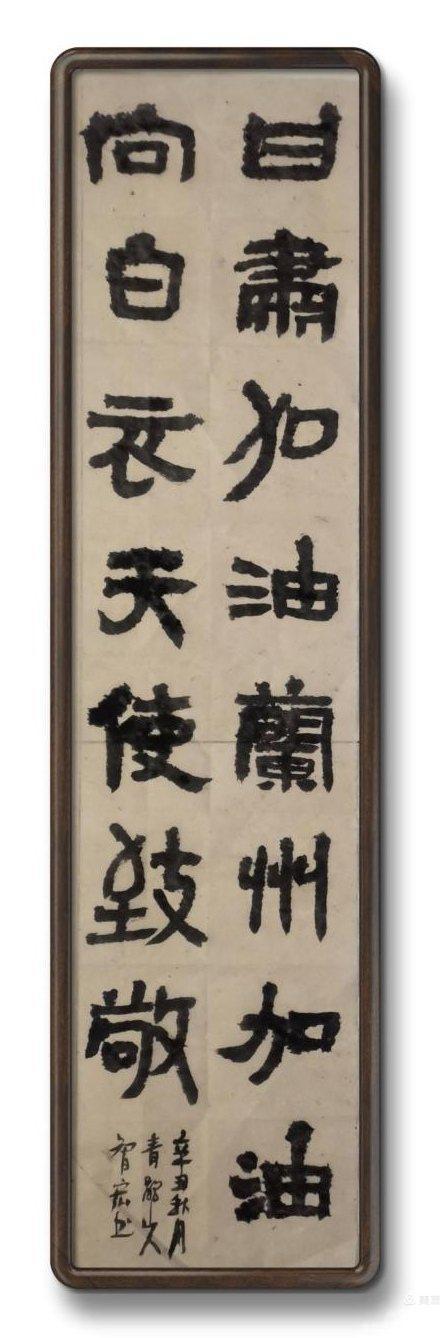 甘肅加油蘭州加油
向白衣天使致敬
辛丑秋月
智宏书